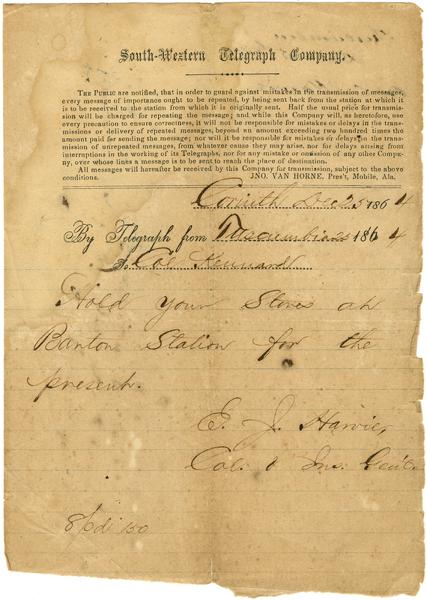 South-Western Telegraph Company.
THE PUBLIC are notified, that in order to guard against mistakes in the transmission of messages,
every message of importance ought to be repeated, by being sent back from the station at which it
is to be received to the station from which it is originally sent. Half the usual price for transmis-
sion will be charged for repeating the message; and while this Company will, as heretofore, use
every precaution to ensure correctness, it will not be responsible for mistakes or delays in the trans-
missions or delivery of repeated messages, beyond an amount exceeding two hundred times the
amount paid for sending the message; nor will it be responsible for mistakes or delays in the transmis-
sion of unrepeated messages, from whatever cause they may arise, nor for delays arising from
interruptions in the working of its Telegraphs, nor for any mistake or omission of any other Compa-
ny, over whose lines a message is to be sent to reach the place of destination.
All messages will hereafter be received by this Company for transmission, subject to the above
conditions. JNO. VAN HORNE, Pres't, Mobile, Ala.
Corinth Dec 25 1864
By Telegraph from Tuscumbia 25 1864
To Col Kennard
Hold your Stores at
Barton Station for the
present.
E. J. Harvie,
Col. & Ins. Gen'l.